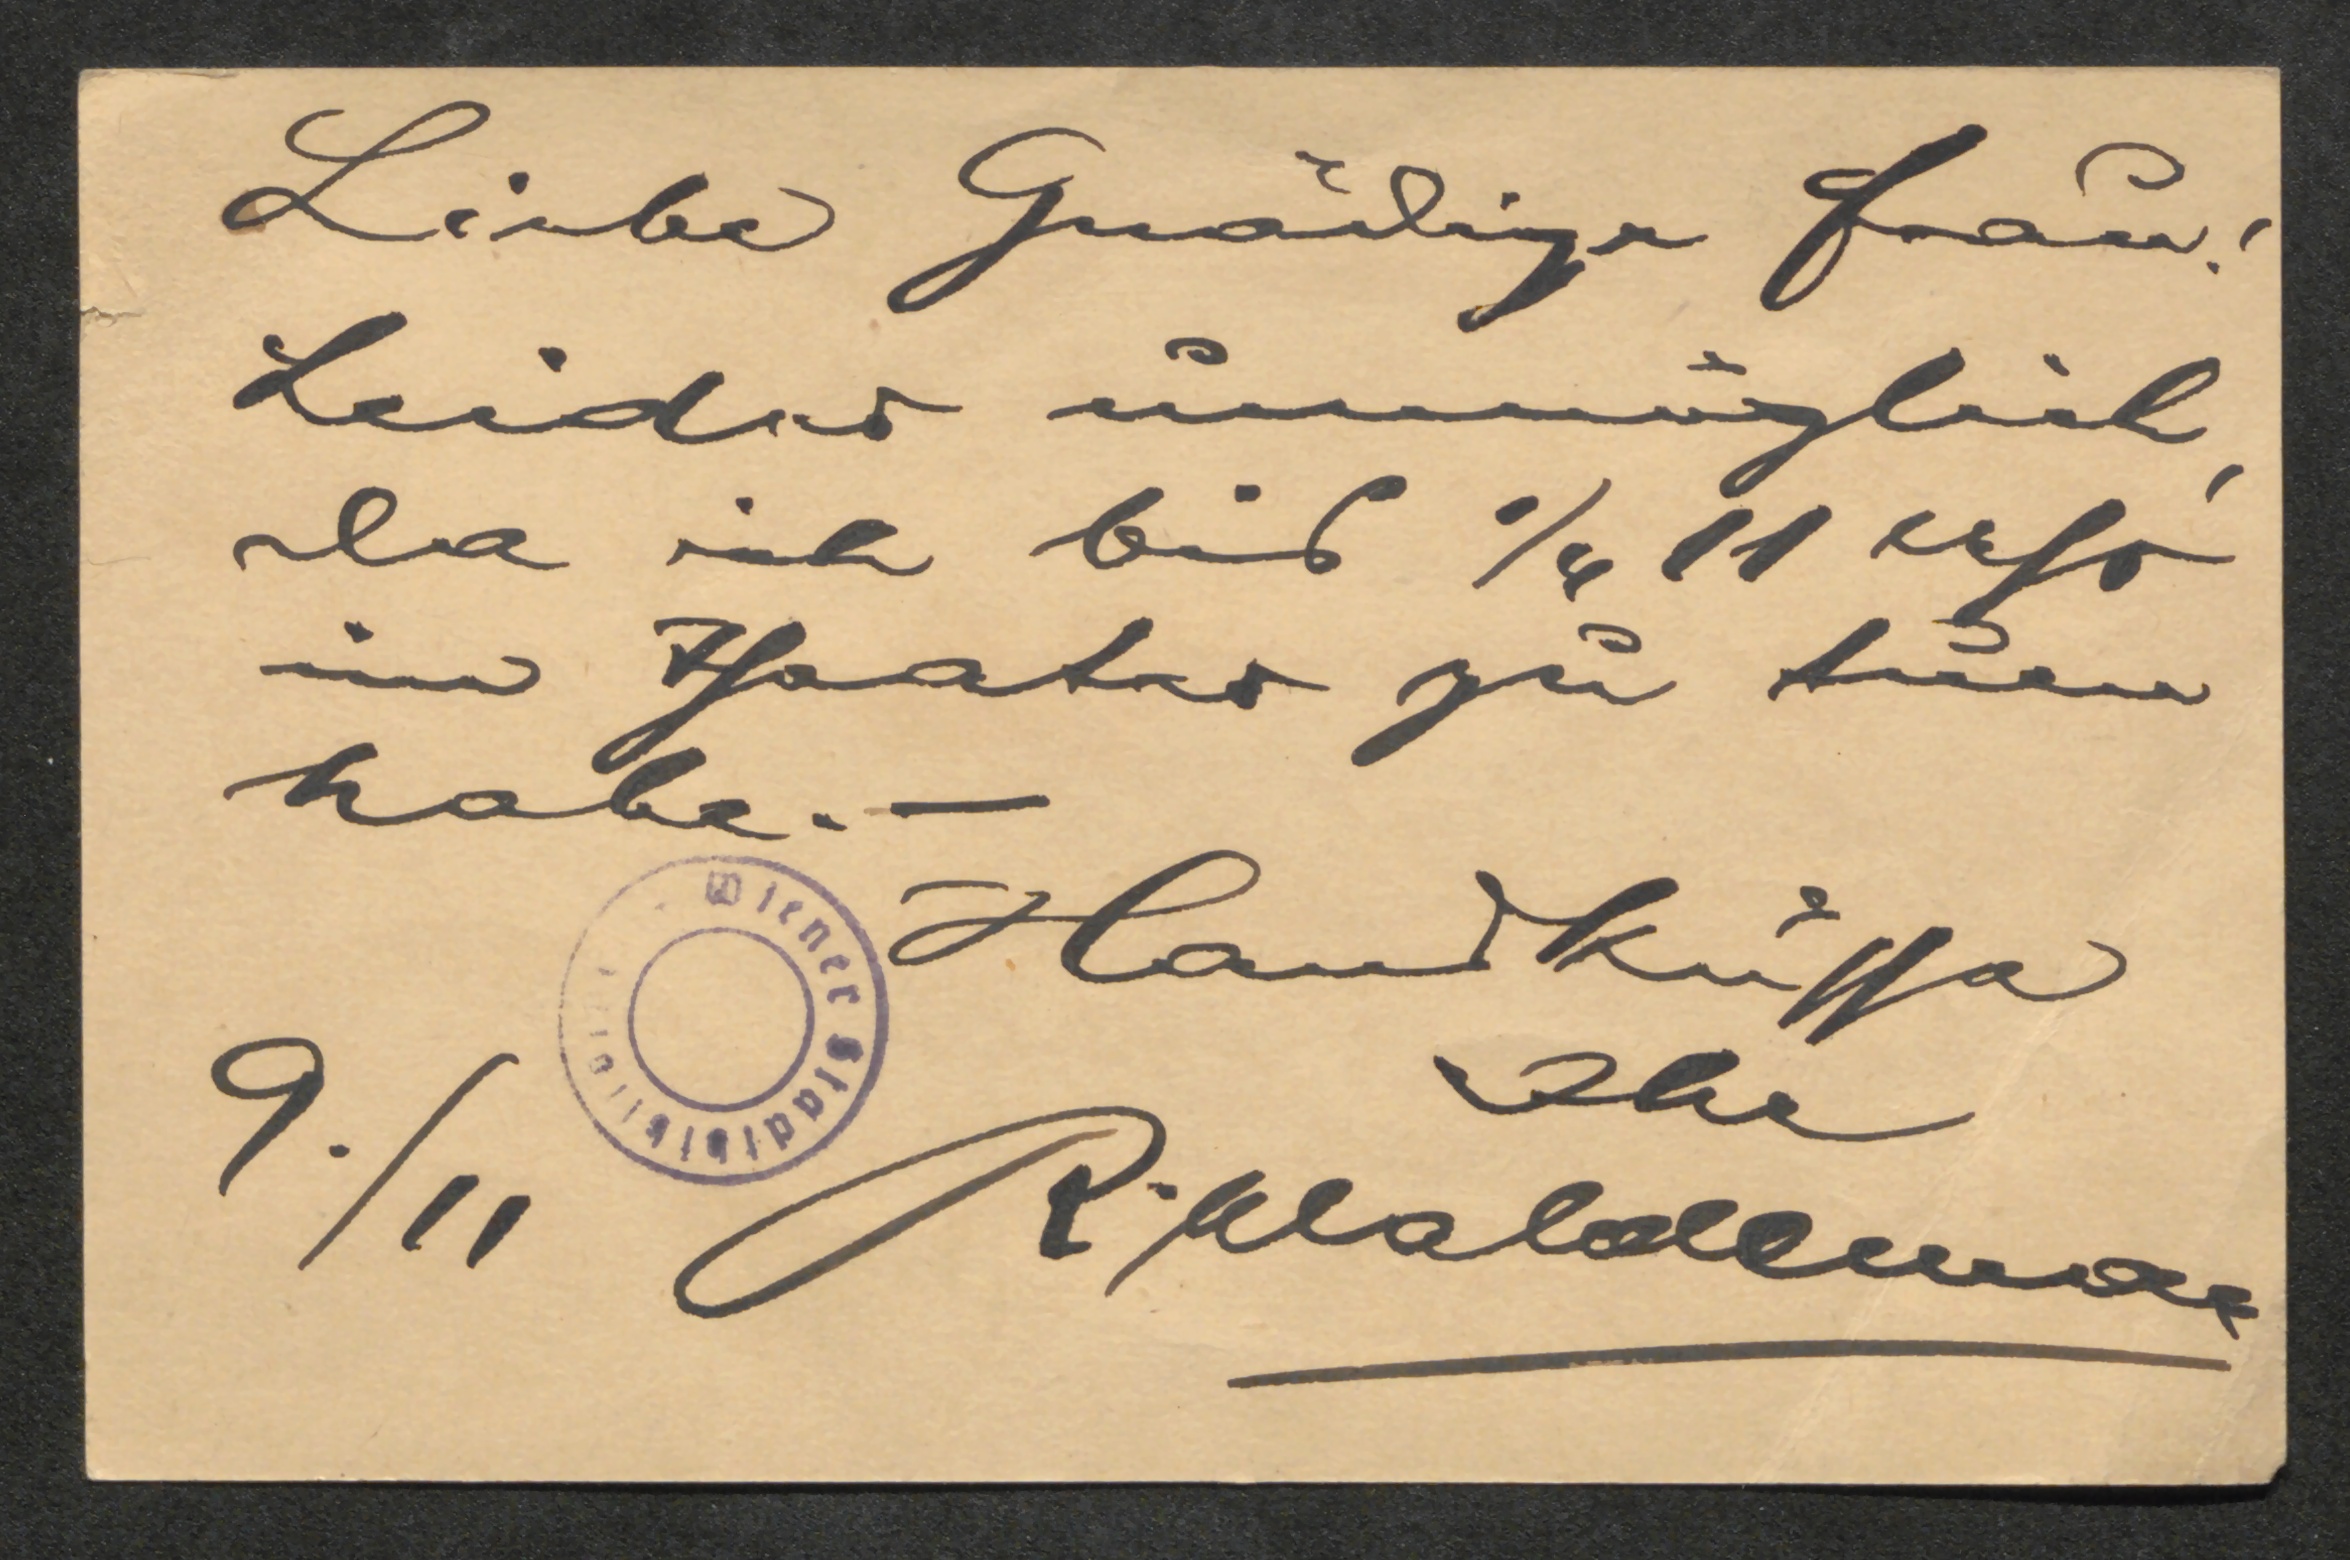 Liebe Gnädige Frau!
Leider unmöglich,
da ich bis 1/4 11 Uhr
im Theater zu tuen
habe. —
Handküsse
Ihr
9./11
R. Waldemar
Wiener Stadtbibliothek